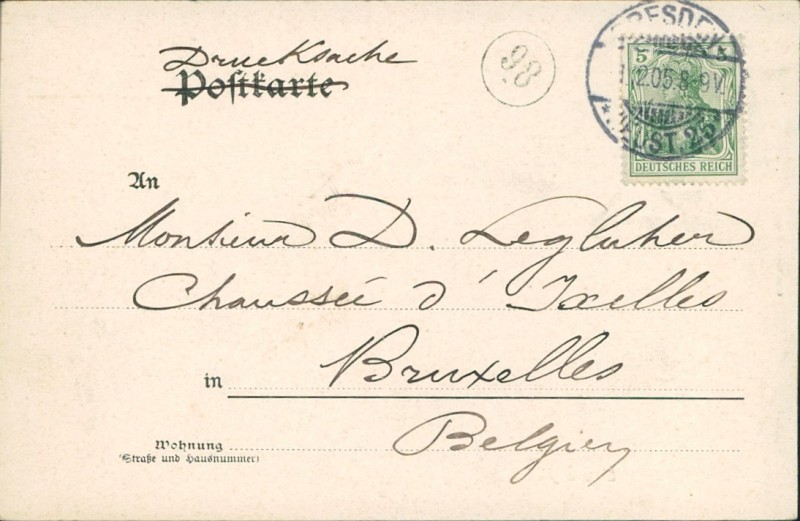 Drucksache
Postkarte
98
DRESDEN
.12.05.8-9V.
ALTST. 25
5 5
DEUTSCHES REICH
An
Monsieur D.
Chaussée d'Ixelles
in Bruxelles
Belgien
Wohnung
(Straße und Hausnummer)